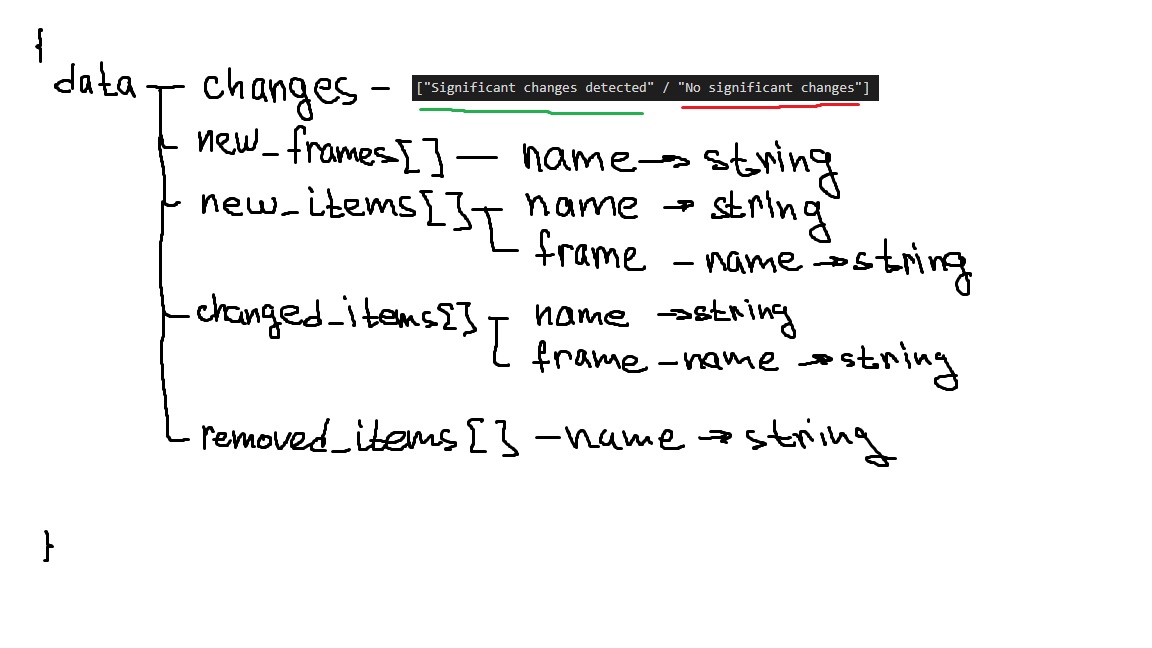 {
data - changes - ["Significant changes detected" / "No significant changes"]
new_frames[] - name → string
new_items[] - name → string
frame - name → string
changed_items[] - name → string
frame - name → string
removed_items[] - name → string
}